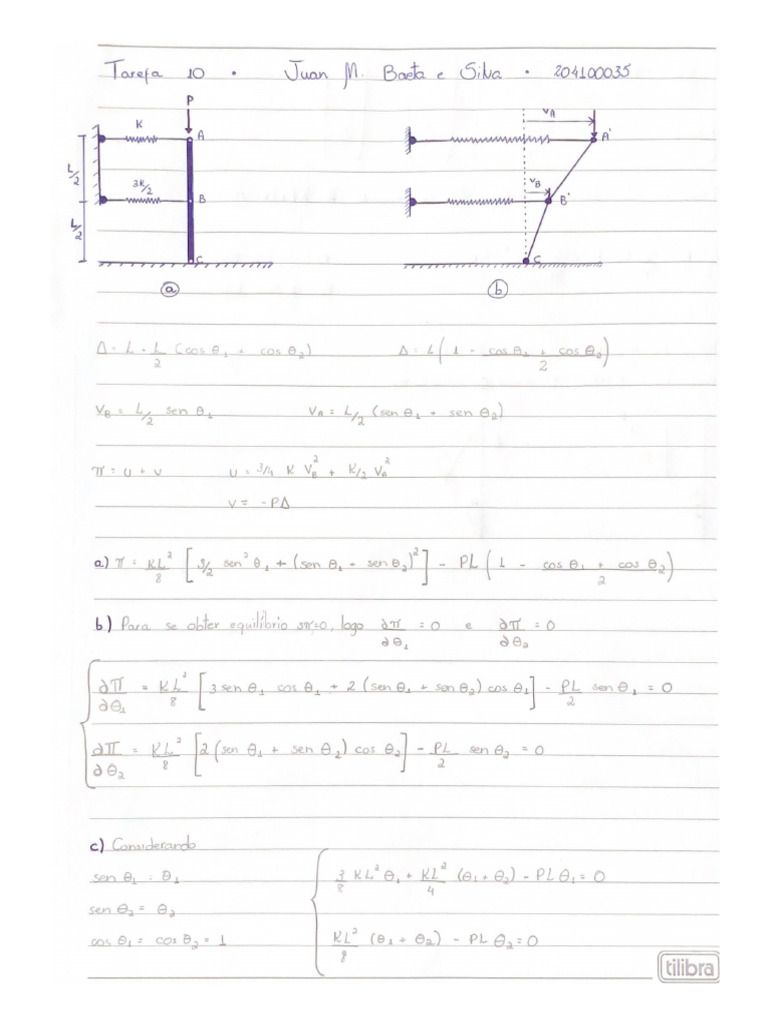 Tarefa 10 • Juan M. Baeta e Silva • 204100035
P
K
A
L/2
3K/2
B
L/2
C
a
V_A
A'
V_B
B'
C
b
Δ = L - L/2 (cos θ₁ + cos θ₂)    Δ = L(1 - (cos θ₁ + cos θ₂)/2)
V_B = L/2 sen θ₁    V_A = L/2 (sen θ₁ + sen θ₂)
π = U + V    U = 3/4 K V_B² + K/2 V_A²
V = -PΔ
a) π = KL²/8 [3/2 sen² θ₁ + (sen θ₁ + sen θ₂)²] - PL(1 - (cos θ₁ + cos θ₂)/2)
b) Para se obter equilíbrio δπ=0, logo ∂π/∂θ₁ = 0 e ∂π/∂θ₂ = 0
∂π/∂θ₁ = KL²/8 [3 sen θ₁ cos θ₁ + 2 (sen θ₁ + sen θ₂) cos θ₁] - PL/2 sen θ₁ = 0
∂π/∂θ₂ = KL²/8 [2 (sen θ₁ + sen θ₂) cos θ₂] - PL/2 sen θ₂ = 0
c) Considerando
sen θ₁ = θ₁    3/8 KL² θ₁ + KL²/4 (θ₁ + θ₂) - PL θ₁ = 0
sen θ₂ = θ₂
cos θ₁ = cos θ₂ = 1    KL²/8 (θ₁ + θ₂) - PL θ₂ = 0
tilibra